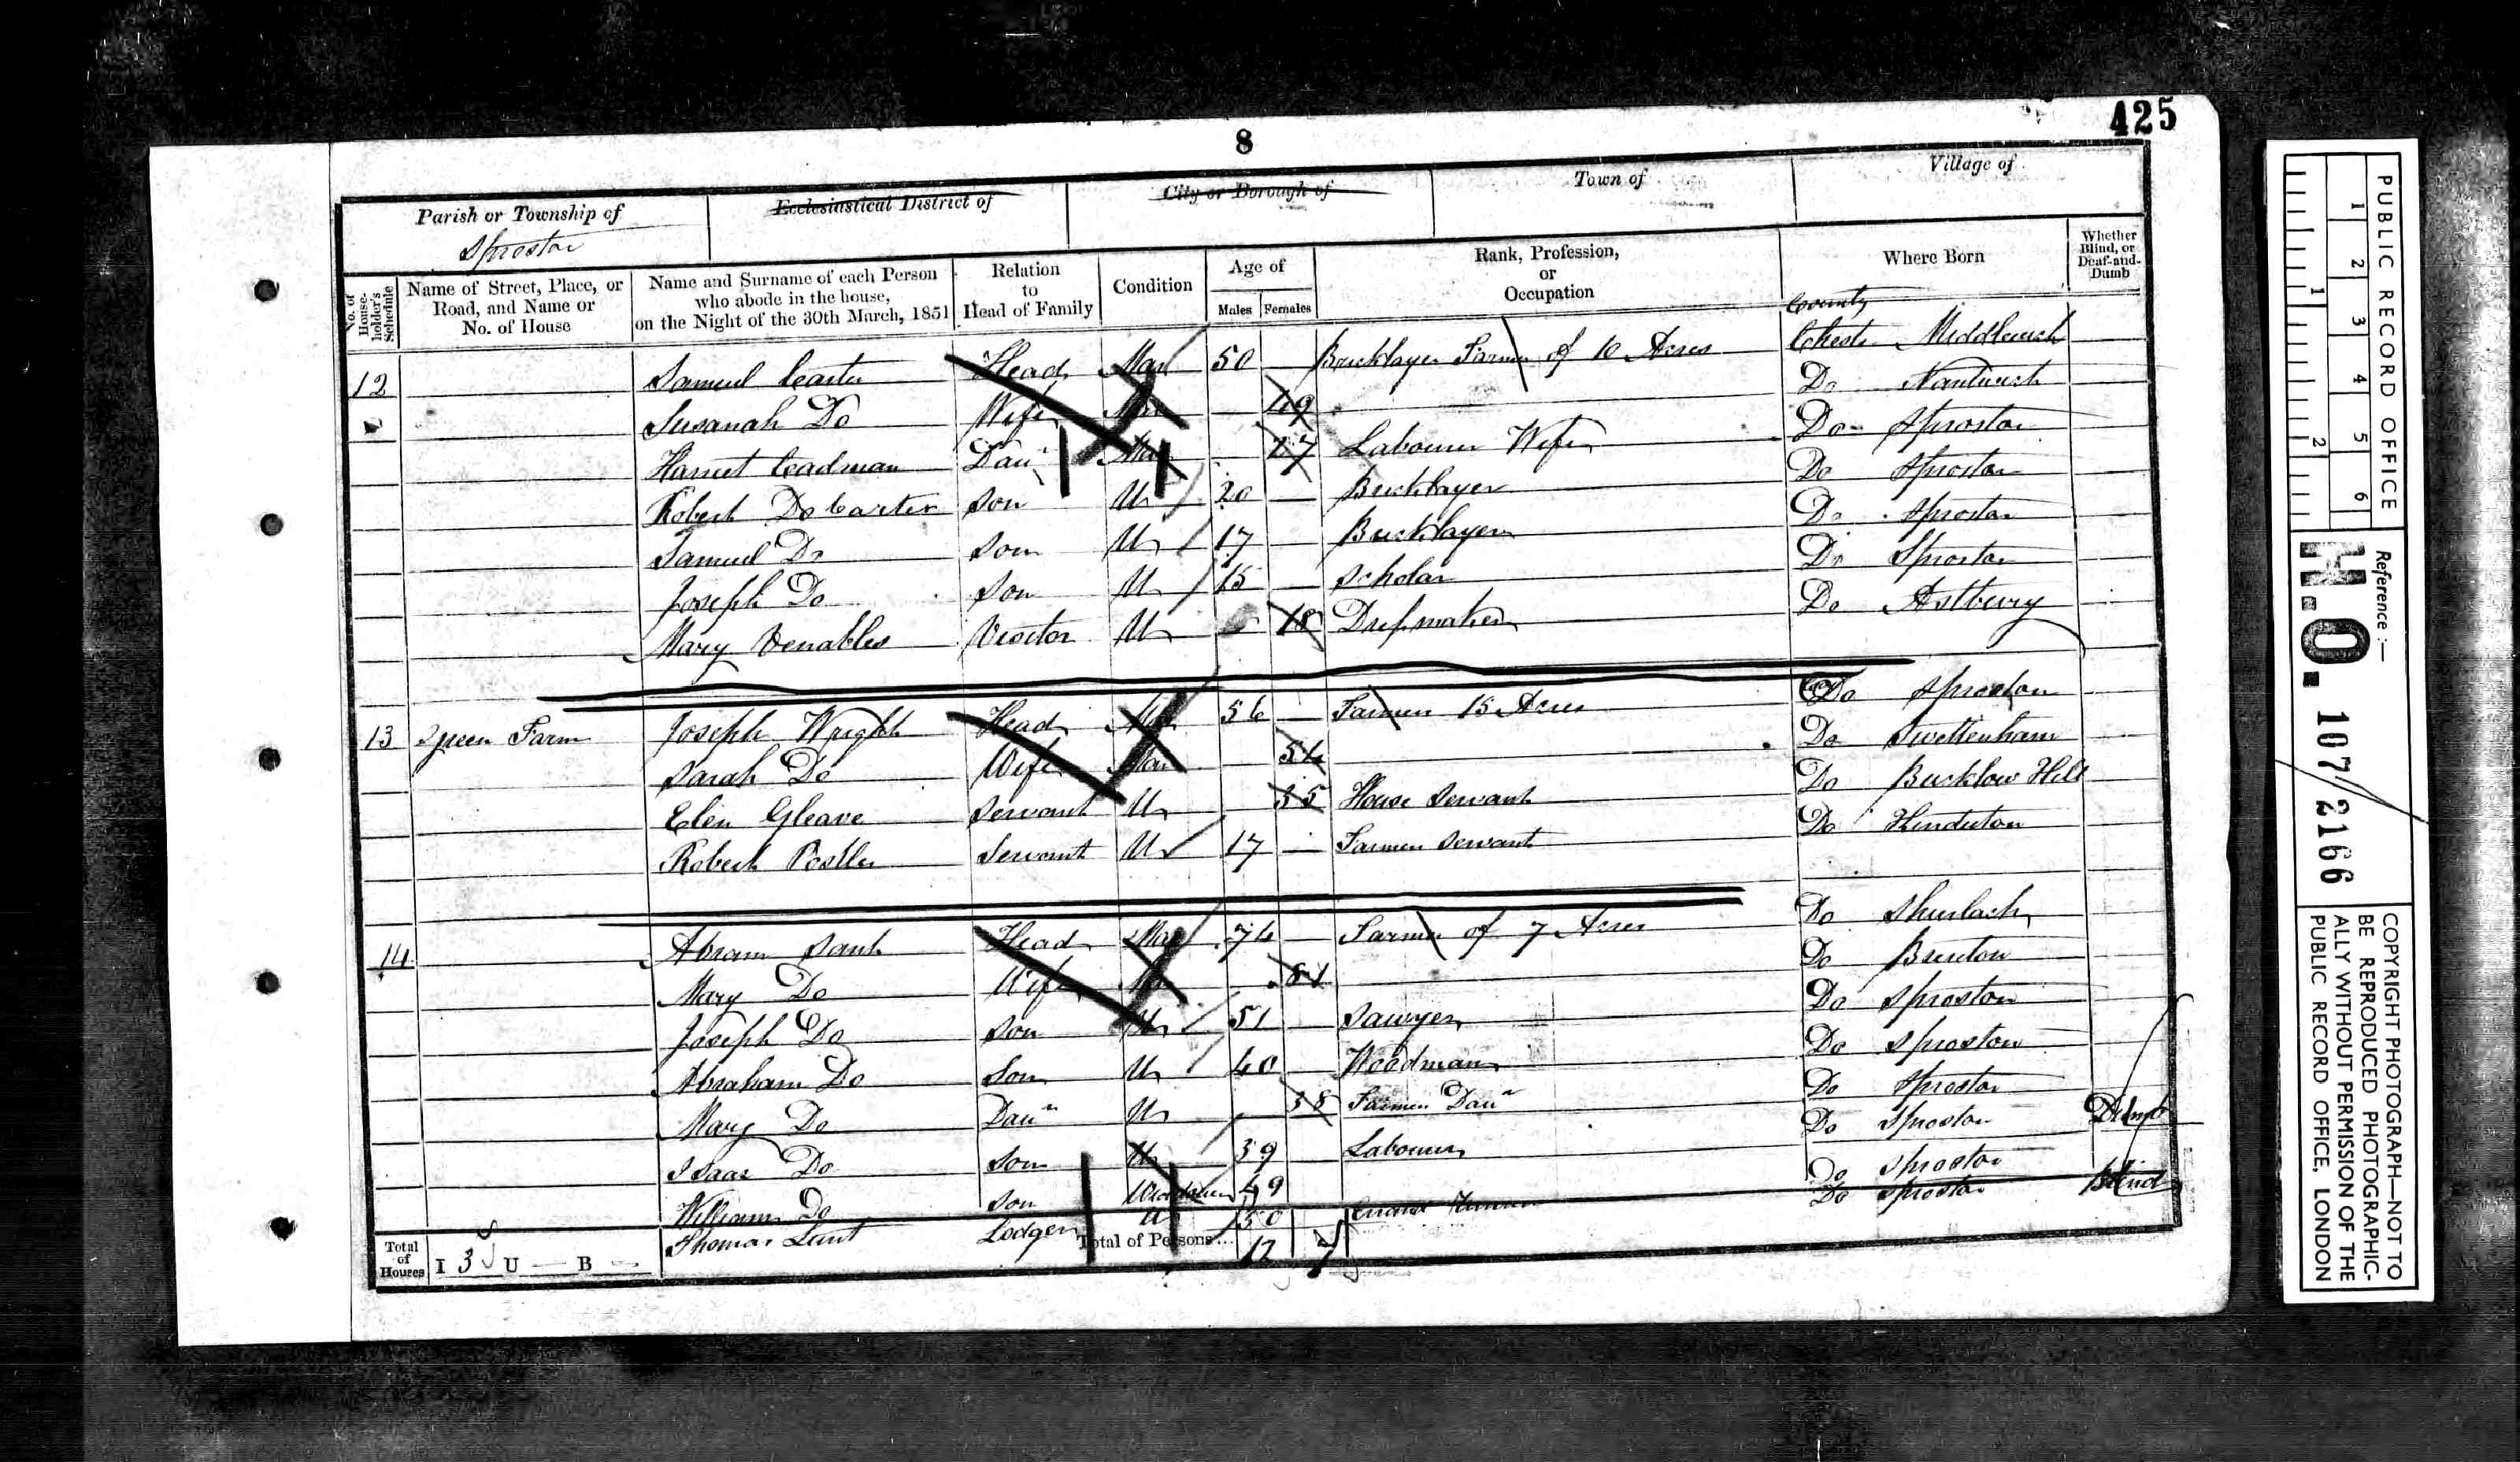 425
8
Parish or Township of
Sproston
Ecclesiastical District of
City or Borough of
Town of
Village of
No. of House-holder's Schedule
Name of Street, Place, or Road, and Name or No. of House
Name and Surname of each Person who abode in the house, on the Night of the 30th March, 1851
Relation to Head of Family
Condition
Age of
Males Females
Rank, Profession, or Occupation
Where Born
Whether Blind, or Deaf-and-Dumb
County
12 Samuel Carter Head Mar 50 Bricklayer Farmer of 10 Acres Chester Middlewich
Susanah Do Wife Mar 49 Do Nantwich
Harriet Cadman Daur Mar 27 Labourer Wife Do Sproston
Robert Do Carter Son U 20 Bricklayer Do Sproston
Samuel Do Son U 17 Bricklayer Do Sproston
Joseph Do Son U 15 Scholar Do Sproston
Mary Venables Visitor U 18 Dressmaker Do Astbury
13 Green Farm Joseph Wright Head Mar 56 Farmer 15 Acres Do Sproston
Sarah Do Wife Mar Do Swettenham
Elen Gleave Servant U 35 House Servant Do Bucklow Hill
Robert Servant U 17 Farmer Servant Do
14 Abram Head Mar Farmer of 7 Acres Do Shurlach
Mary Do Wife Mar 81 Do
Joseph Do Son U 51 Sawyer Do Sproston
Abraham Do Son U 40 Woodman Do Sproston
Mary Do Daur U 38 Farmer Daur Do Sproston
Isaac Do Son U 39 Labourer Do Sproston Dumb
William Do Son 49 Do Sproston
Thomas Lunt Lodger U 50 Errand Runner Do Sproston Blind
Total of Houses I 3 U — B —
Total of Persons... 12 7
PUBLIC RECORD OFFICE
1 2 3 4 5 6
1 2
Reference :—
H.O. 107/2166
COPYRIGHT PHOTOGRAPH—NOT TO
BE REPRODUCED PHOTOGRAPHIC-
ALLY WITHOUT PERMISSION OF THE
PUBLIC RECORD OFFICE, LONDON